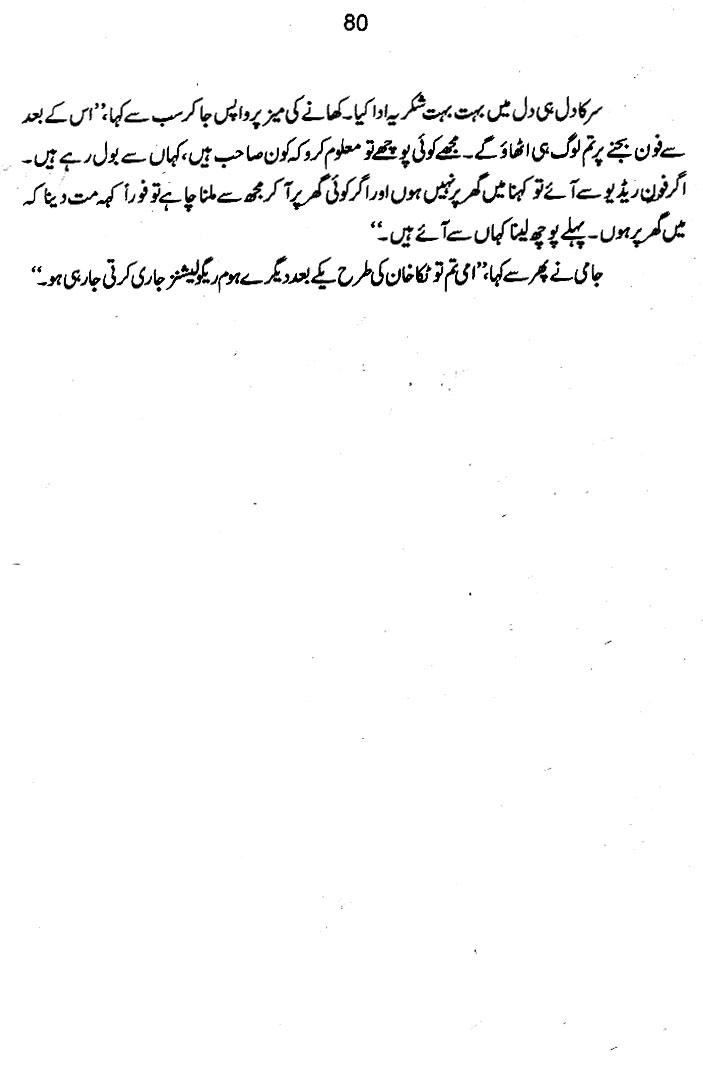 80
سر کا دل ہی دل میں بہت بہت شکریہ ادا کیا۔ کھانے کی میز پر واپس جا کر سب سے کہا، ’’اس کے بعد
سے فون بجنے پر تم لوگ ہی اٹھاؤ گے۔ مجھے کوئی پوچھے تو معلوم کرو کہ کون صاحب ہیں، کہاں سے بول رہے ہیں۔
اگر فون ریڈیو سے آئے تو کہنا میں گھر پر نہیں ہوں اور اگر کوئی گھر پر آ کر مجھ سے ملنا چاہے تو فوراً کہہ مت دینا کہ
میں گھر پر ہوں۔ پہلے پوچھ لینا کہاں سے آئے ہیں۔‘‘
جامی نے پھر سے کہا، ’’امی تم تو ٹکا خان کی طرح یکے بعد دیگرے ہوم ریگولیشنز جاری کرتی جا رہی ہو۔‘‘